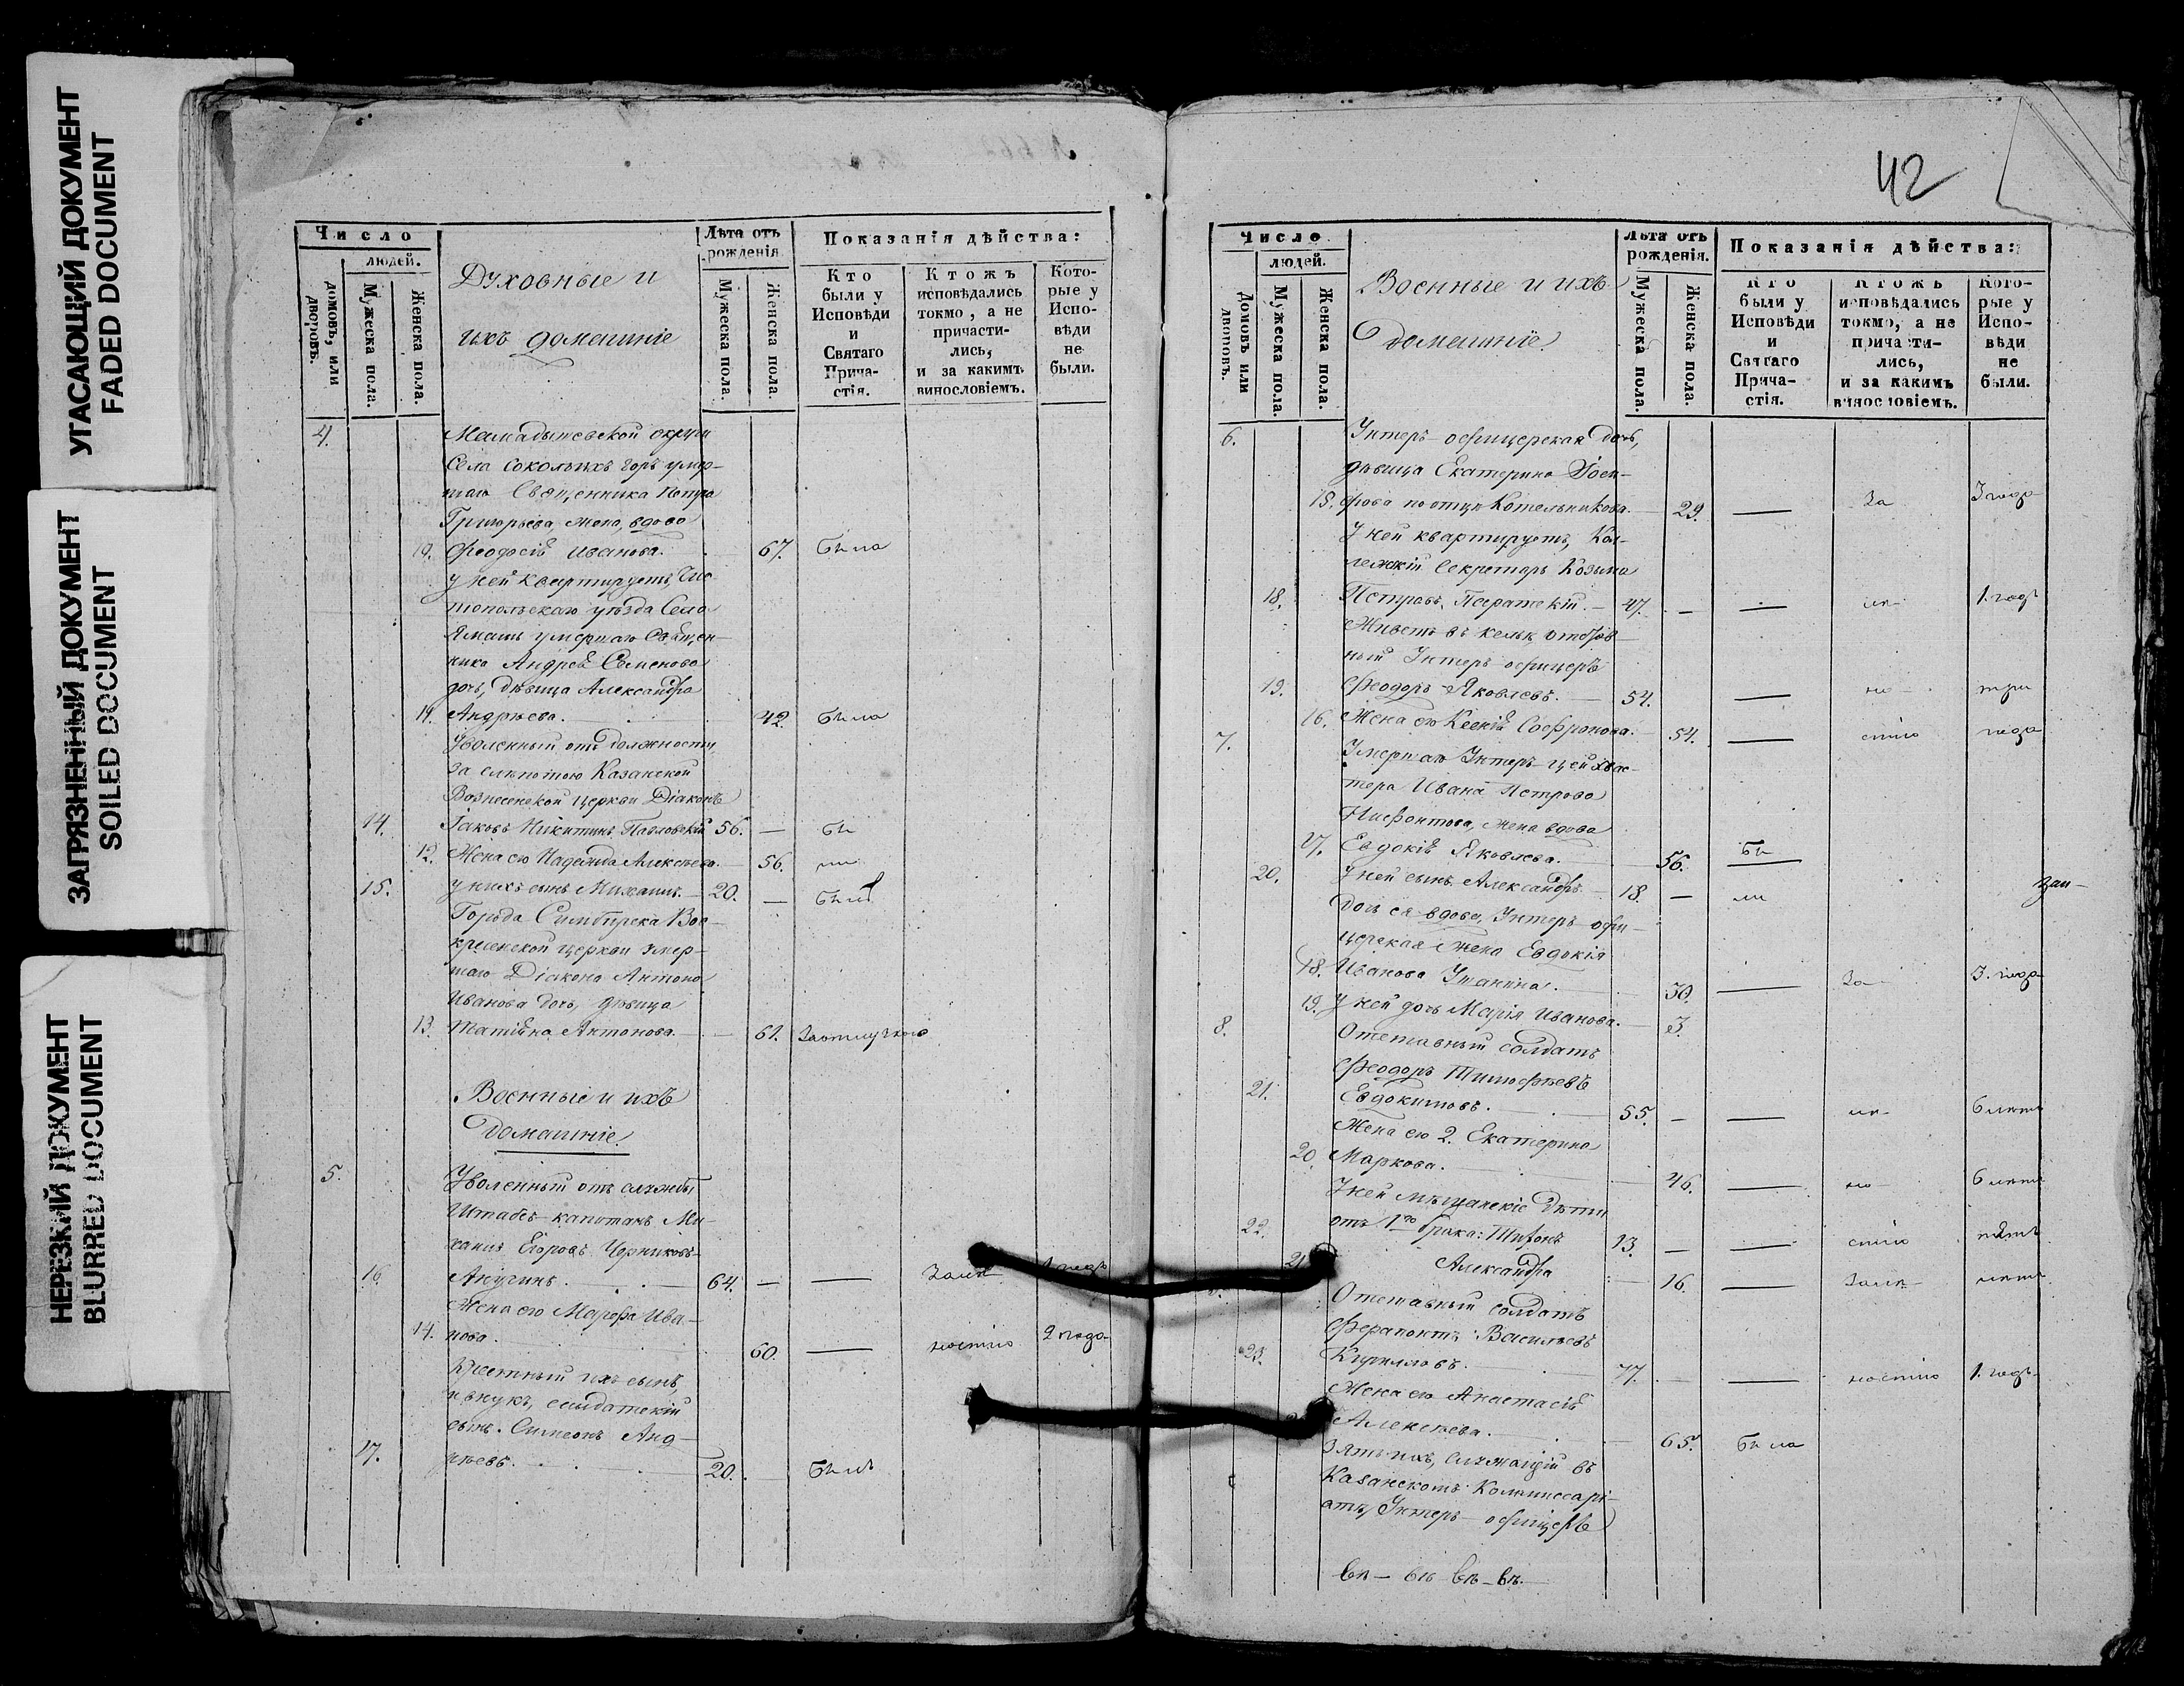 УГАСАЮЩИЙ ДОКУМЕНТ
FADED DOCUMENT
ЗАГРЯЗНЕННЫЙ ДОКУМЕНТ
SOILED DOCUMENT
НЕРЕЗКИЙ ДОКУМЕНТ
BLURRED DOCUMENT
Число
людей.
домовъ, или дворовъ.
Мужеска пола.
Женска пола.
Духовные и
ихъ домашніе
Лѣта отъ
рожденія
Мужеска пола.
Женска пола.
Показанія дѣйства:
Кто
были у
Исповѣди
и
Святаго
Прича-
стія.
Ктожъ
исповѣдались
токмо, а не
причасти-
лись,
и за какимъ
винословіемъ.
Кото-
рые у
Испо-
вѣди
не
были.
4. Мамадышевской округи
Села Сокольихъ горъ умер-
шаго Священника Петра
Григорьева, жена, вдова
10. Феодосія Иванова. 67. Была
у ней квартируетъ, Чис-
топольскаго уѣзда Села
умершаго Священ-
ника Андрея Семенова
дочь, дѣвица Александра
11. Андреева. 42. Была
Уволенный отъ должности
за слѣпотою Казанской
Вознесенской церкви Діаконъ
14. Іаковъ Никитинъ Павловскій 56. — бы
12. Жена его Надежда Алексѣева. 56. ли
15. у нихъ сынъ Михаилъ. 20. — Былъ
Города Симбирска Вос-
кресенской церкви умер-
шаго Діакона Антона
Иванова дочь, дѣвица
13. Татіана Антонова. 61. За отлучкою
Военные и ихъ
домашніе.
5. Уволенный отъ службы
Штабсъ-капитанъ Ми-
хаилъ Егоровъ
16. 64. — —
Жена его Марфа Ива-
14. нова. 60. — ностію 2 года
ихъ сынъ,
и внукъ, солдатскій
сынъ. Симеонъ Анд-
17. реевъ. 20. Былъ
42
Число
людей.
Домовъ или дворовъ.
Мужеска пола.
Женска пола.
Военные и ихъ
домашніе.
Лѣта отъ
рожденія.
Мужеска пола.
Женска пола.
Показанія дѣйства:
Кто
были у
Исповѣди
и
Святаго
Прича-
стія.
Ктожъ
исповѣдались
токмо, а не
причасти-
лись,
и за какимъ
винословіемъ.
Кото-
рые у
Испо-
вѣди
не
были.
6. Унтеръ-офицерская дочь,
дѣвица Екатерина Іоси-
15. фова по отцѣ Котельникова. 29. — За 3 года
У ней квартируетъ, Кол-
лежскій Секретарь Козьма
18. Петровъ 47. — — 1. годъ
Живетъ въ кельѣ отстав-
ный Унтеръ офицеръ
19. Феодоръ Яковлевъ. 54. — но три
16. Жена его Ксенія Софронова. 54. — стію года
7. Умершаго Унтеръ-цейхвах-
тера Ивана Петрова
Нифонтова, жена вдова
17. Евдокія Яковлева. 56. бы
20. У ней сынъ Александръ. 18. — ли
дочь ея вдова, Унтеръ-офи-
церская жена Евдокія
18. Иванова 30. — За 3. года
19. У ней дочь Марія Иванова. 3.
8. Отставный солдатъ
Феодоръ Тимофѣевъ
21. Евдокимовъ. 55. — — 6 лѣтъ
Жена его 2. Екатерина
20. Маркова. 46. — но 6 лѣтъ
У ней мѣщанскіе дѣти
22. отъ 1го брака: 13. — — стію пять
21. Александра 16. — лѣтъ
Отставный солдатъ
Ферапонтъ Васильевъ
23. Кирилловъ. 77. — — ностію 1. годъ
Жена его Анастасія
Алексѣева. 65. Была
Зять ихъ, служащій въ
Казанскомъ Коммиссарі-
атѣ, Унтеръ-офицеръ